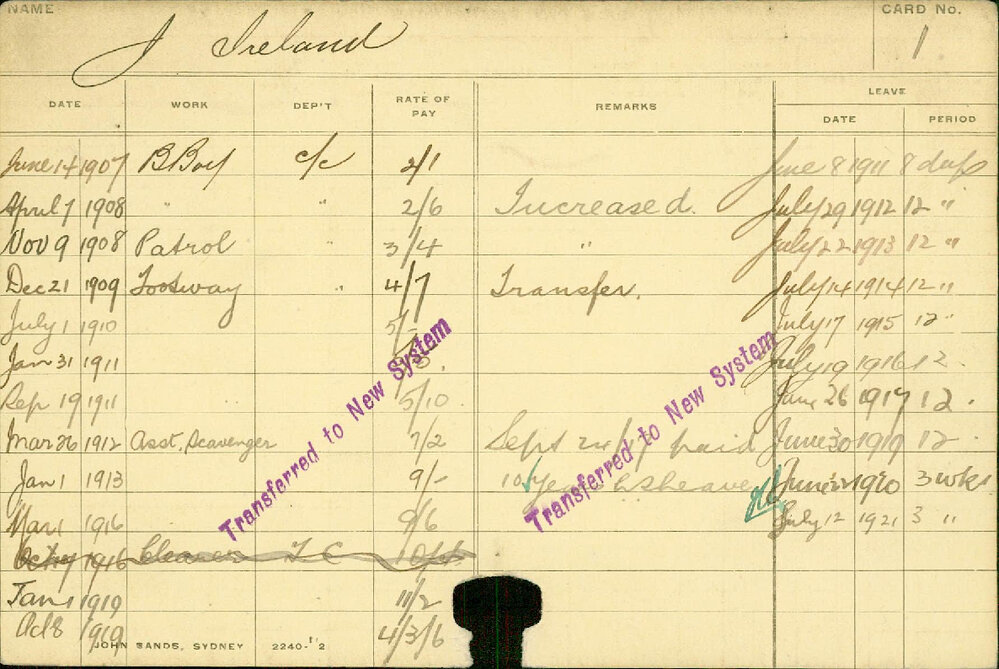 NAME J Ireland CARD No. 1
DATE WORK DEP'T RATE OF PAY REMARKS LEAVE
DATE PERIOD
June 14 1907 B Boy c/c 2/1 June 8 1911 8 days
April 7 1908 " " 2/6 Increased. July 29 1912 12 "
Nov 9 1908 Patrol " 3/4 " July 22 1913 12 "
Dec 21 1909 Footway " 4/7 Transfer. July 14 1914 12 "
July 1 1910 5/- July 17 1915 12 "
Jan 31 1911 July 19 1916 12.
Sep 19 1911 5/10. June 26 1917 12.
Mar 26 1912 Asst. Scavenger 7/2 Sept 24/17 paid June 30 1919 12
Jan 1 1913 9/- 10 years L S leave June 1920 3 wks
Mar 1 1916 9/6 July 12 1921 3 "
Oct 1916 Cleaner T C
Jan 1 1919 11/2
Oct 8 1919 4/3/6
Transferred to New System
Transferred to New System
JOHN SANDS, SYDNEY 2240-1'12